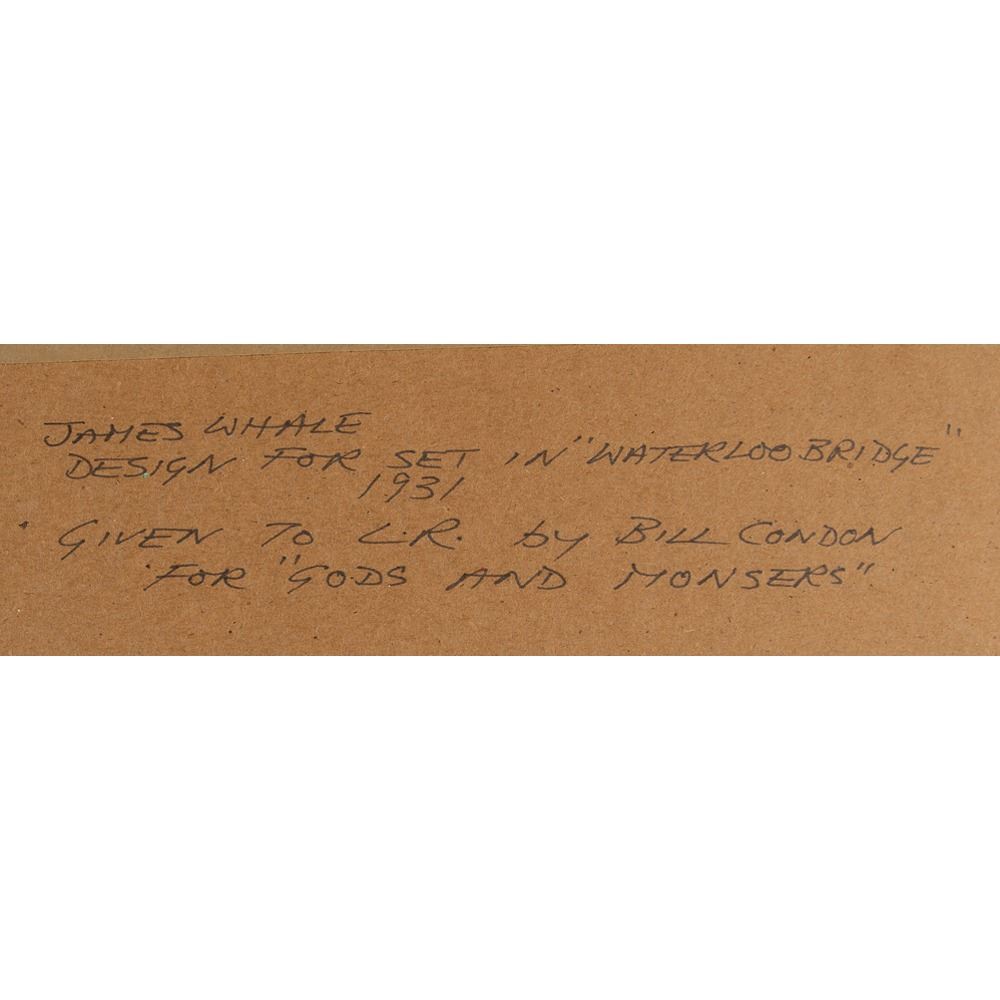 JAMES WHALE
DESIGN FOR SET IN "WATERLOO BRIDGE"
1931
GIVEN TO L.R. by BILL CONDON
FOR "GODS AND MONSERS"